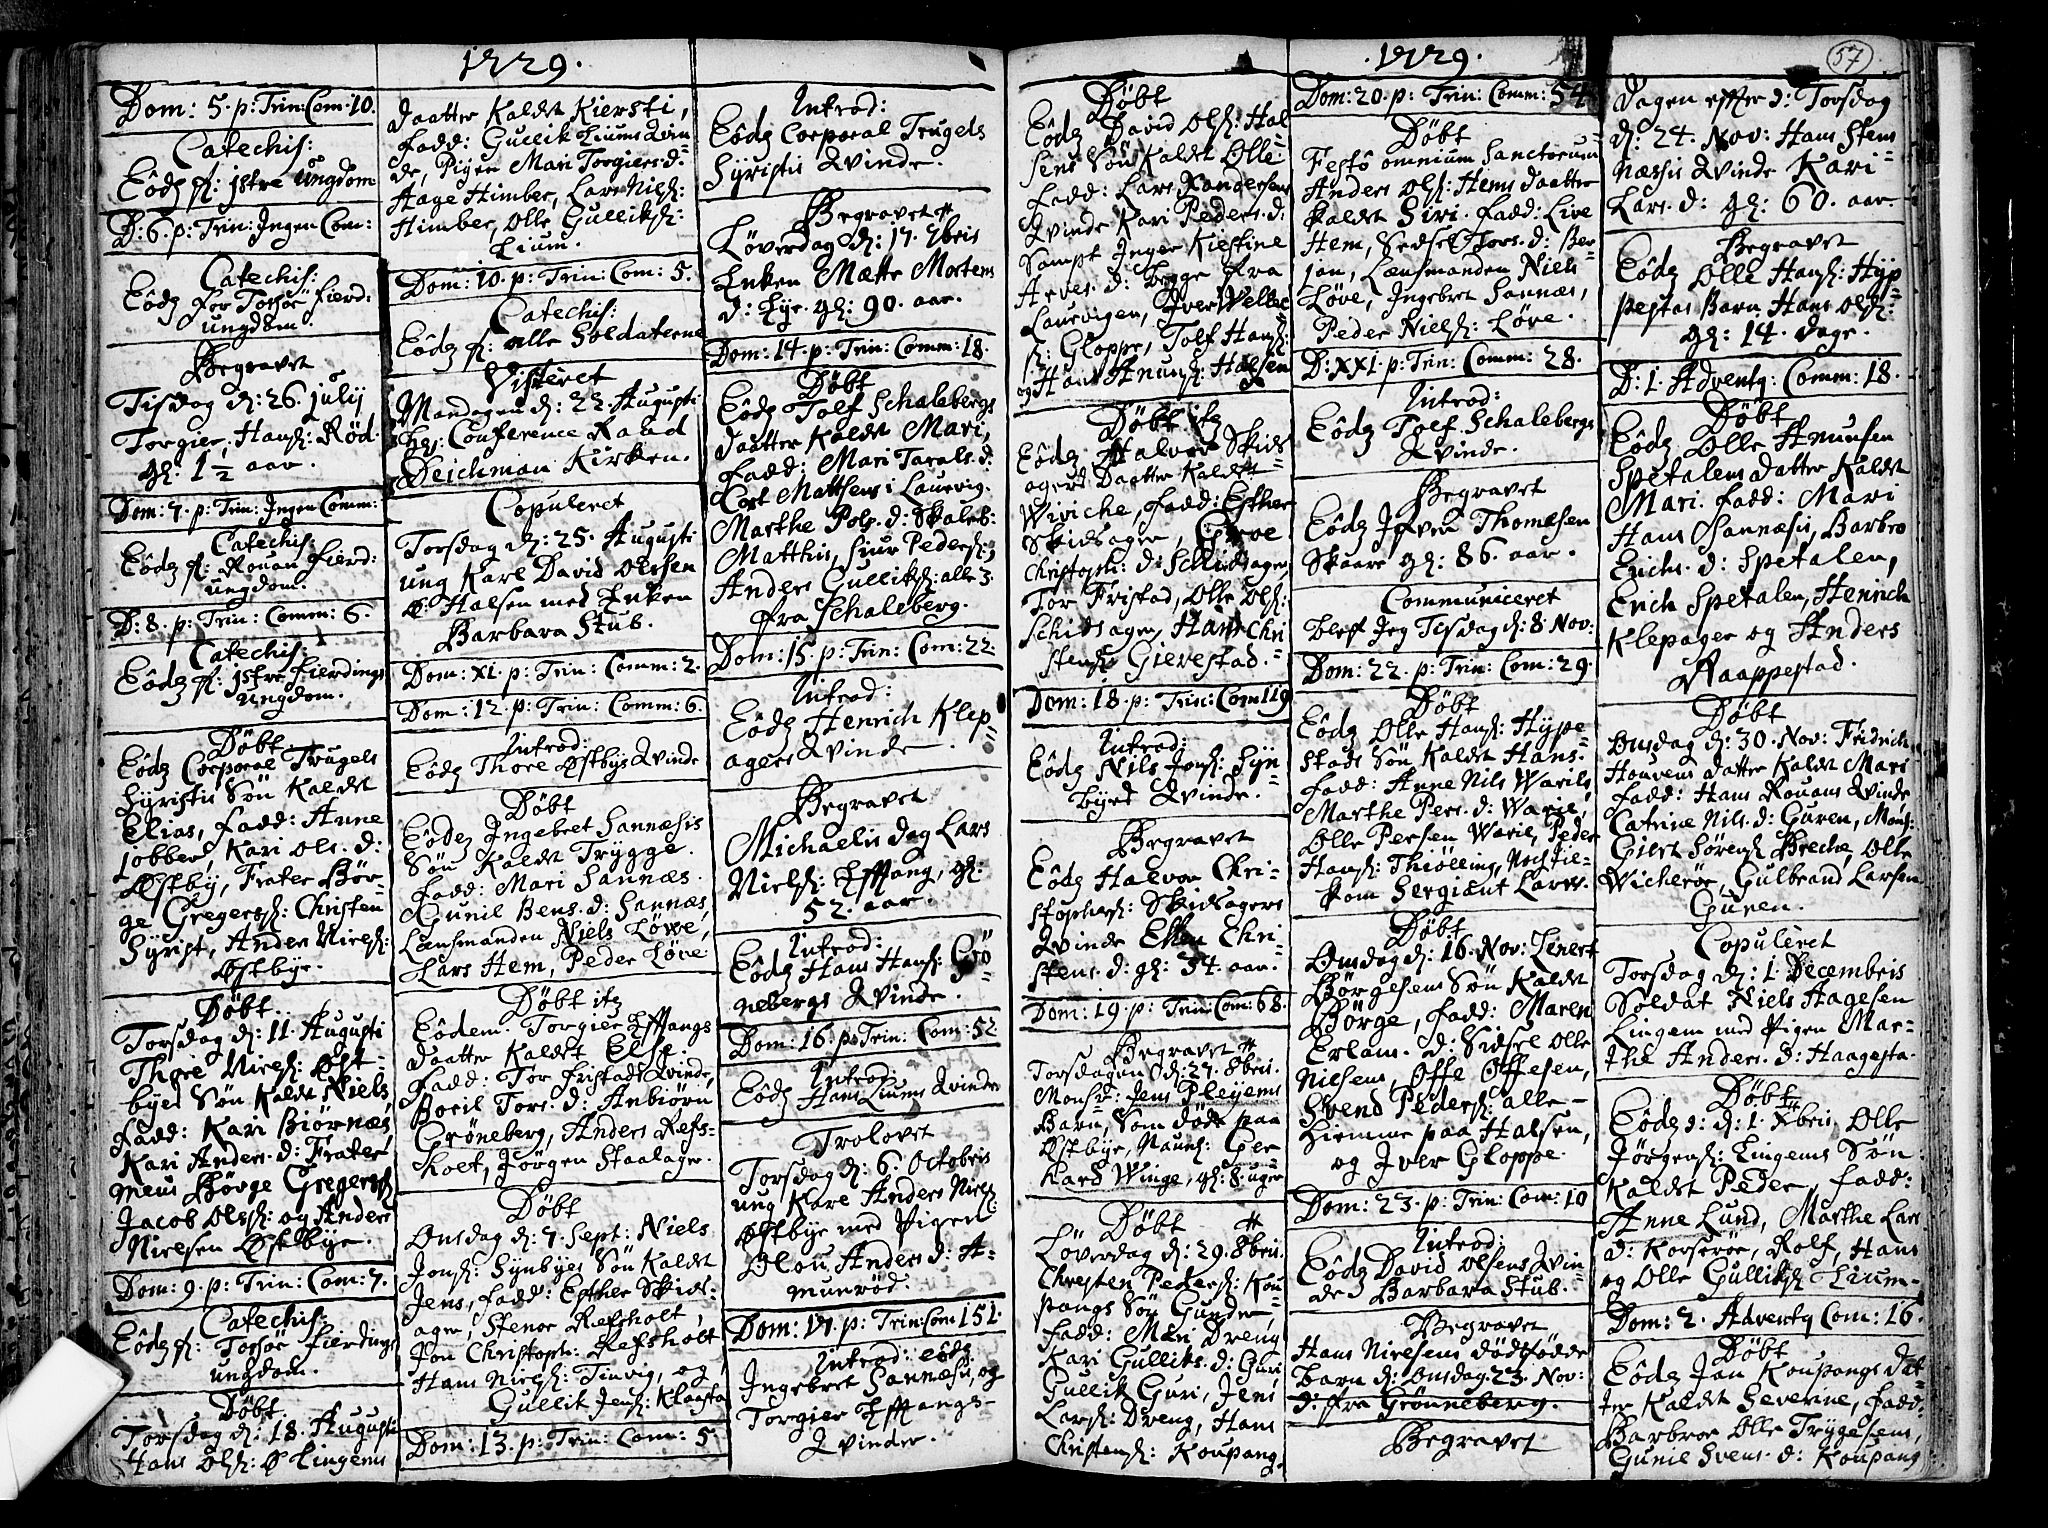 1729.
Dom: 5. p: Trin: Com: 10.
Catechis:
Eôdẽ fl: østre ungdom
D: 6. p: Trin: Ingen Com:
Catechis:
Eôdẽ for Tossøe fierd:
ungdom.
Begravet
Tisdag d: 26. julij
Torgier Hans: Rød.
gl: 1½ aar.
Dom: 7. p: Trin: Ingen Comm:
Catechis:
Eôdẽ fl: Rouan fierd:
ungdom.
D: 8. p: Trin: Comm: 6.
Catechis:
Eôdẽ fl: østre fierdings
ungdom.
Døbt
Eôdẽ Corporal Trugels
Syristis Søn kaldet
Elias, fadd: Anne
Jobber, Kari Ols: d:
Østby, Frater Bør-
ge Gregers: Christen
Syrist, Anders Niels:
Østbye.
Døbt
Torsdag d: 11 Augusti
Thore Niels: Øst-
byes Søn kaldt Niels
fadd: Kari Biørnæs
Kari Anders: d: Frater
meus Børge Gregers
Jacob Ols: og Anders
Nielsen Østbye.
Dom: 9. p: Trin: Com: 7.
Catechis:
Eôdẽ fl: Tossøe fierdings
ungdom.
Døbt
Torsdag d: 18. Augusti
Hans Ols: Ø Lingems
daatter kaldt Kiersti,
fadd: Gullik Liums qvin
de, Pigen Mari Torgiers: d:
Aage Himber, Lars Niels:
Himber, Olle Gulliks:
Lium.
Dom: 10. p: Trin: Com: 5.
Catechis:
Eôdẽ fl: alle Soldaterne
Visiteret
Mandagen d: 22. Augusti
Hr: Conference Raad
Deichman Kirken.
Copuleret
Torsdag d: 25. Augusti
ung Karl David Olesen
Ø Halsen med Enken
Barbara Stub.
Dom: XI. p: Trin: Comm: 2.
Dom: 12. p: Trin: Comm: 6.
Introd:
Eôdẽ Thore Østbys Qvinde
Døbt
Eôdẽ Ingebret Sannæsis
Søn kaldt Trygge.
fadd: Mari Sannæs.
Gunil Bens: d: Sannæs,
Lænsmanden Niels Løve,
Lars Hem, Peder Løve
Døbt itẽ
Eôdem Torgier Effangs
daatter kaldt Else.
fadd: Tor fristads Qvinde,
Boril Tors: d: Anbiørn
Grøneberg, Anders Refs-
holt, Jørgen Staalager.
Døbt
Onsdag d: 7. Sept: Niels
Jons: Synbyes Søn kaldt
Jens, fadd: Esther Skids-
ager, Stenor Refsholt,
Jon Christoph: Refsholt
Hans Niels: Tinvig, og
Gullik Jens: Klaasta
Dom: 13. p: Trin: Com: 5.
Introd:
Eôdẽ Corporal Trugels
Syristis Qvinde.
Begravet
Løverdag d: 17. 7bris
Enken Mætte Mortens
d: Eye. gl: 90. aar.
Dom: 14. p: Trin: Comm: 18.
Døbt
Eôdẽ Tolf Schalebergs
daatter kaldt Mari,
fadd: Mari Tarals: d:
Cort Matthsens i Laurvig.
Marthe Pols: d: Skaleb:
Matthis, Siur Peders:
Anders Gulliks: alle 3.
fra Schaleberg.
Dom: 15. p: Trin: Com: 22.
Introd:
Eôdẽ Henrich Klep-
agers Qvinde.
Begravet
Michaelis dag Lars
Niels: Effang, gl:
52. aar.
Introd:
Eôdẽ Hans Hans: Grø-
nebergs Qvinde.
Dom: 16. p: Trin: Com: 52
Introd:
Eôdẽ Hans Liums Qvinde
Trolovet
Torsdag d: 6. Octobris
ung Karl Anders Niels:
Østbye med Pigen
Olou Anders: d: A-
munrød.
Dom: 17. p: Trin: Com: 151.
Introd: eôdẽ
Ingebret Sannæsis, og
Torgier Effangs-
Qvinder.
1729.
57
Døbt
Eôdẽ David Ols: Hal
sens Søn kaldt Olle.
fadd: Lars Xandersens
Qvinde Kari Peders: d:
Sampt Inger Kiestine
Arves: d: begge fra
Laurvigen, Iver Welles
s: Gloppe, Tolf Hans:
og Hans Anuns: Halsen
Døbt itẽ
Eôdẽ Halvor Skids
agers Daatter kaldt
Wiviche, fadd: Esther
Skidsager, Greve
Christoph: d: Schidsager
Tor Fristad, Olle Ols:
Schidsager, Hans Chri
stens: Gierestad.
Dom: 18. p: Trin: Com 119
Introd:
Eôdẽ Nils Jons: Syn-
byes Qvinde.
Begravet
Eôdẽ Halvor Chri-
stophers: Skidsagers
Qvinde Ellen Chri-
stens: d: gl: 34. aar.
Dom: 19. p: Trin: Com: 68.
Begravet
Torsdagen d: 27. 8bris.
Monsr: Jens Pleyems
Barn, som døde paa
Østbye, Naunl: Ger
hard Winge, gl: 8. uger
Døbt
Løverdag d: 29. 8bris.
Christen Peders: Kou
pangs Søn Gunder
fadd: Mari Dreng
Kari Gulliks: d: Guri
Gullik Guri, Jens
Lars: Dreng, Hans
Christens: Koupang.
1729.
Dom: 20. p: Trin: Comm: 54
Døbt
Festô omnium Sanctorum
Anders Ols: Hems daatter
kaldet Siri. fadd: Live
Hem, Sedsel Thors: d: Ber-
jan, Lænsmanden Niels
Løve, Ingebret Sannæs,
Peder Niels: Løve.
D: XXI. p: Trin: Comm: 28.
Introd:
Eôdẽ Tolf Schalebergs
Qvinde.
Begravet
Eôdẽ Jofven Thomæsen
Skaare gl: 86. aar.
Communiceret
blef Jeg Tisdag d: 8 Nov:
Dom: 22. p: Trin: Com: 29.
Døbt
Eôdẽ Olle Hans: Hype-
stads Søn kaldt Hans.
fadd: Anne Nils Warils
Marthe Pers: d: Waril,
Olle Persen Waril, Peder
Hans: Thiølling,
Sergiant Lars.
Døbt
Onsdag d: 16. Nov: Lenert
Børgesens Søn kaldt
Børge, fadd: Maren
Erlam: d: Sidsel Olle
Nielsens, Offe Offesen,
Svend Peders: alle
hiemme paa Halsen,
og Iver Gloppe.
Dom: 23. p: Trin: Com: 10
Introd:
Eôdẽ David Olsens Qvin-
de Barbara Stub.
Begravet
Hans Nielsens dødfødde
barn d: Onsdag 23. Nov:
d: fra Grønneberg.
Begravet
Dagen effter d: Torsdag
d: 24. Nov: Hans Stens
Næssis Qvinde Kari
Lars: d: gl: 60. aar.
Begravet
Eôdẽ Olle Hans: Hyp-
pestas Barn Hans Ols:
gl: 14. dage.
D: 1. Adventq: Comm: 18.
Døbt
Eôdẽ Olle Amunsen
Spetalens datter kaldt
Mari. fadd: Mari
Hans Sannæsis, Barbro
Erichs: d: Spetalen,
Erich Spetalen, Henrich
Klepager og Anders
Raappestad.
Døbt
Onsdag d: 30. Nov: Fridrich
Houvens datter kaldt Mari
fadd: Hans Rouans Qvinde
Catrine Nils: d: Guren, Mons:
Giert Sørens: Breche, Olle
Wicherøe, Gulbrand Larsen
Guren.
Copuleret
Torsdag d: 1. Decembris
Soldat Niels Hagesen
Lingem med Pigen Mar-
the Anders: d: Haagesta.
Døbt
Eôdẽ: d: 1. Xbris Olle
Jørgens: Lingems Søn
kaldt Peder, fadd:
Anne Lund, Marthe Lars
d: Korserøe, Rolf, Hans
og Olle Gulliks: Lium-
Dom: 2. Adventq Com: 16.
Døbt
Eôdẽ Jan Koupangs dat-
ter kaldt Severine, fadd:
Barbroe Olle Trygesens,
Gunil Svens: d: Koupang